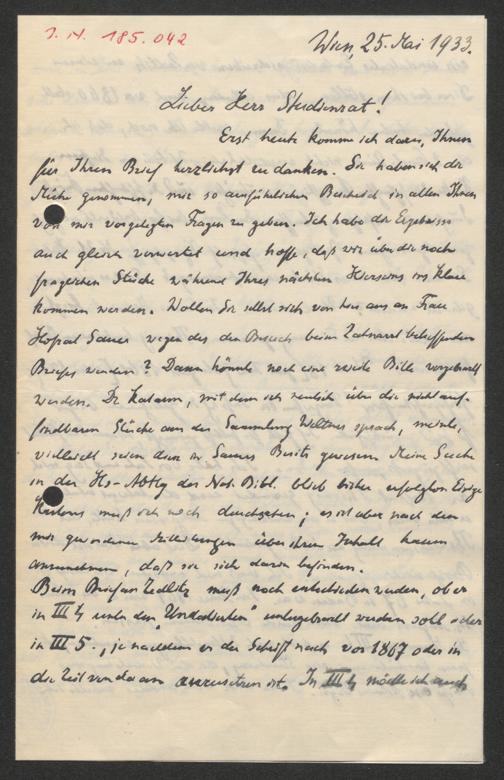 I. N. 185.042
Wien, 25. Mai 1933.
Lieber Herr Studienrat!
Erst heute komme ich dazu, Ihnen
für Ihren Brief herzlichst zu danken. Sie haben sich die
Mühe genommen, mir so ausführlichen Bescheid in allen Ihnen
von mir vorgelegten Fragen zu geben. Ich habe die Ergebnisse
auch gleich verwertet und hoffe, daß wir über die noch
fraglichen Stücke während Ihres nächsten Hierseins ins Klare
kommen werden. Wollen Sie selbst sich von hier aus an Frau
Hofrat Sauer wegen des den Besuch beim Zahnarzt betreffenden
Briefes wenden? Dann könnte noch eine zweite Bitte vorgebracht
werden. Dr. Katann, mit dem ich neulich über die nicht auf-
findbaren Stücke aus der Sammlung Weltner sprach, meinte,
vielleicht seien diese in Sauers Besitz gewesen. Meine Suche
in der Hs-Abtlg der Nat. Bibl. blieb bisher erfolglos. Einige
Kartons muß ich noch durchsehen; es ist aber nach den
mir gewordenen Mitteilungen über ihren Inhalt kaum
anzunehmen, daß sie sich darin befinden.
Beim Brief an Zedlitz muß noch entschieden werden, ob er
in III b unter den "Undatierten" untergebracht werden soll oder
in III 5., je nachdem er der Schrift nach vor 1867 oder in
die Zeit von da an anzusetzen ist. In III b möchte ich auch